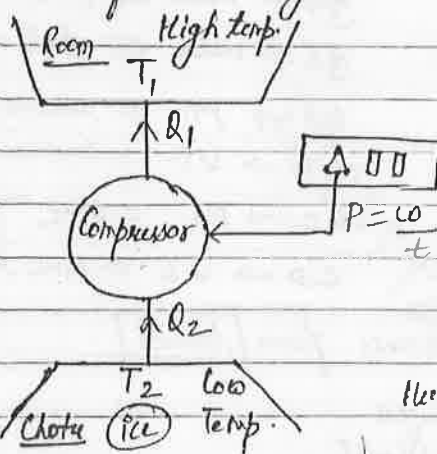 Room High temp.
T₁
Q₁
Compressor
P = ω
t
Q₂
T₂ Low
Chotu ice Temp.